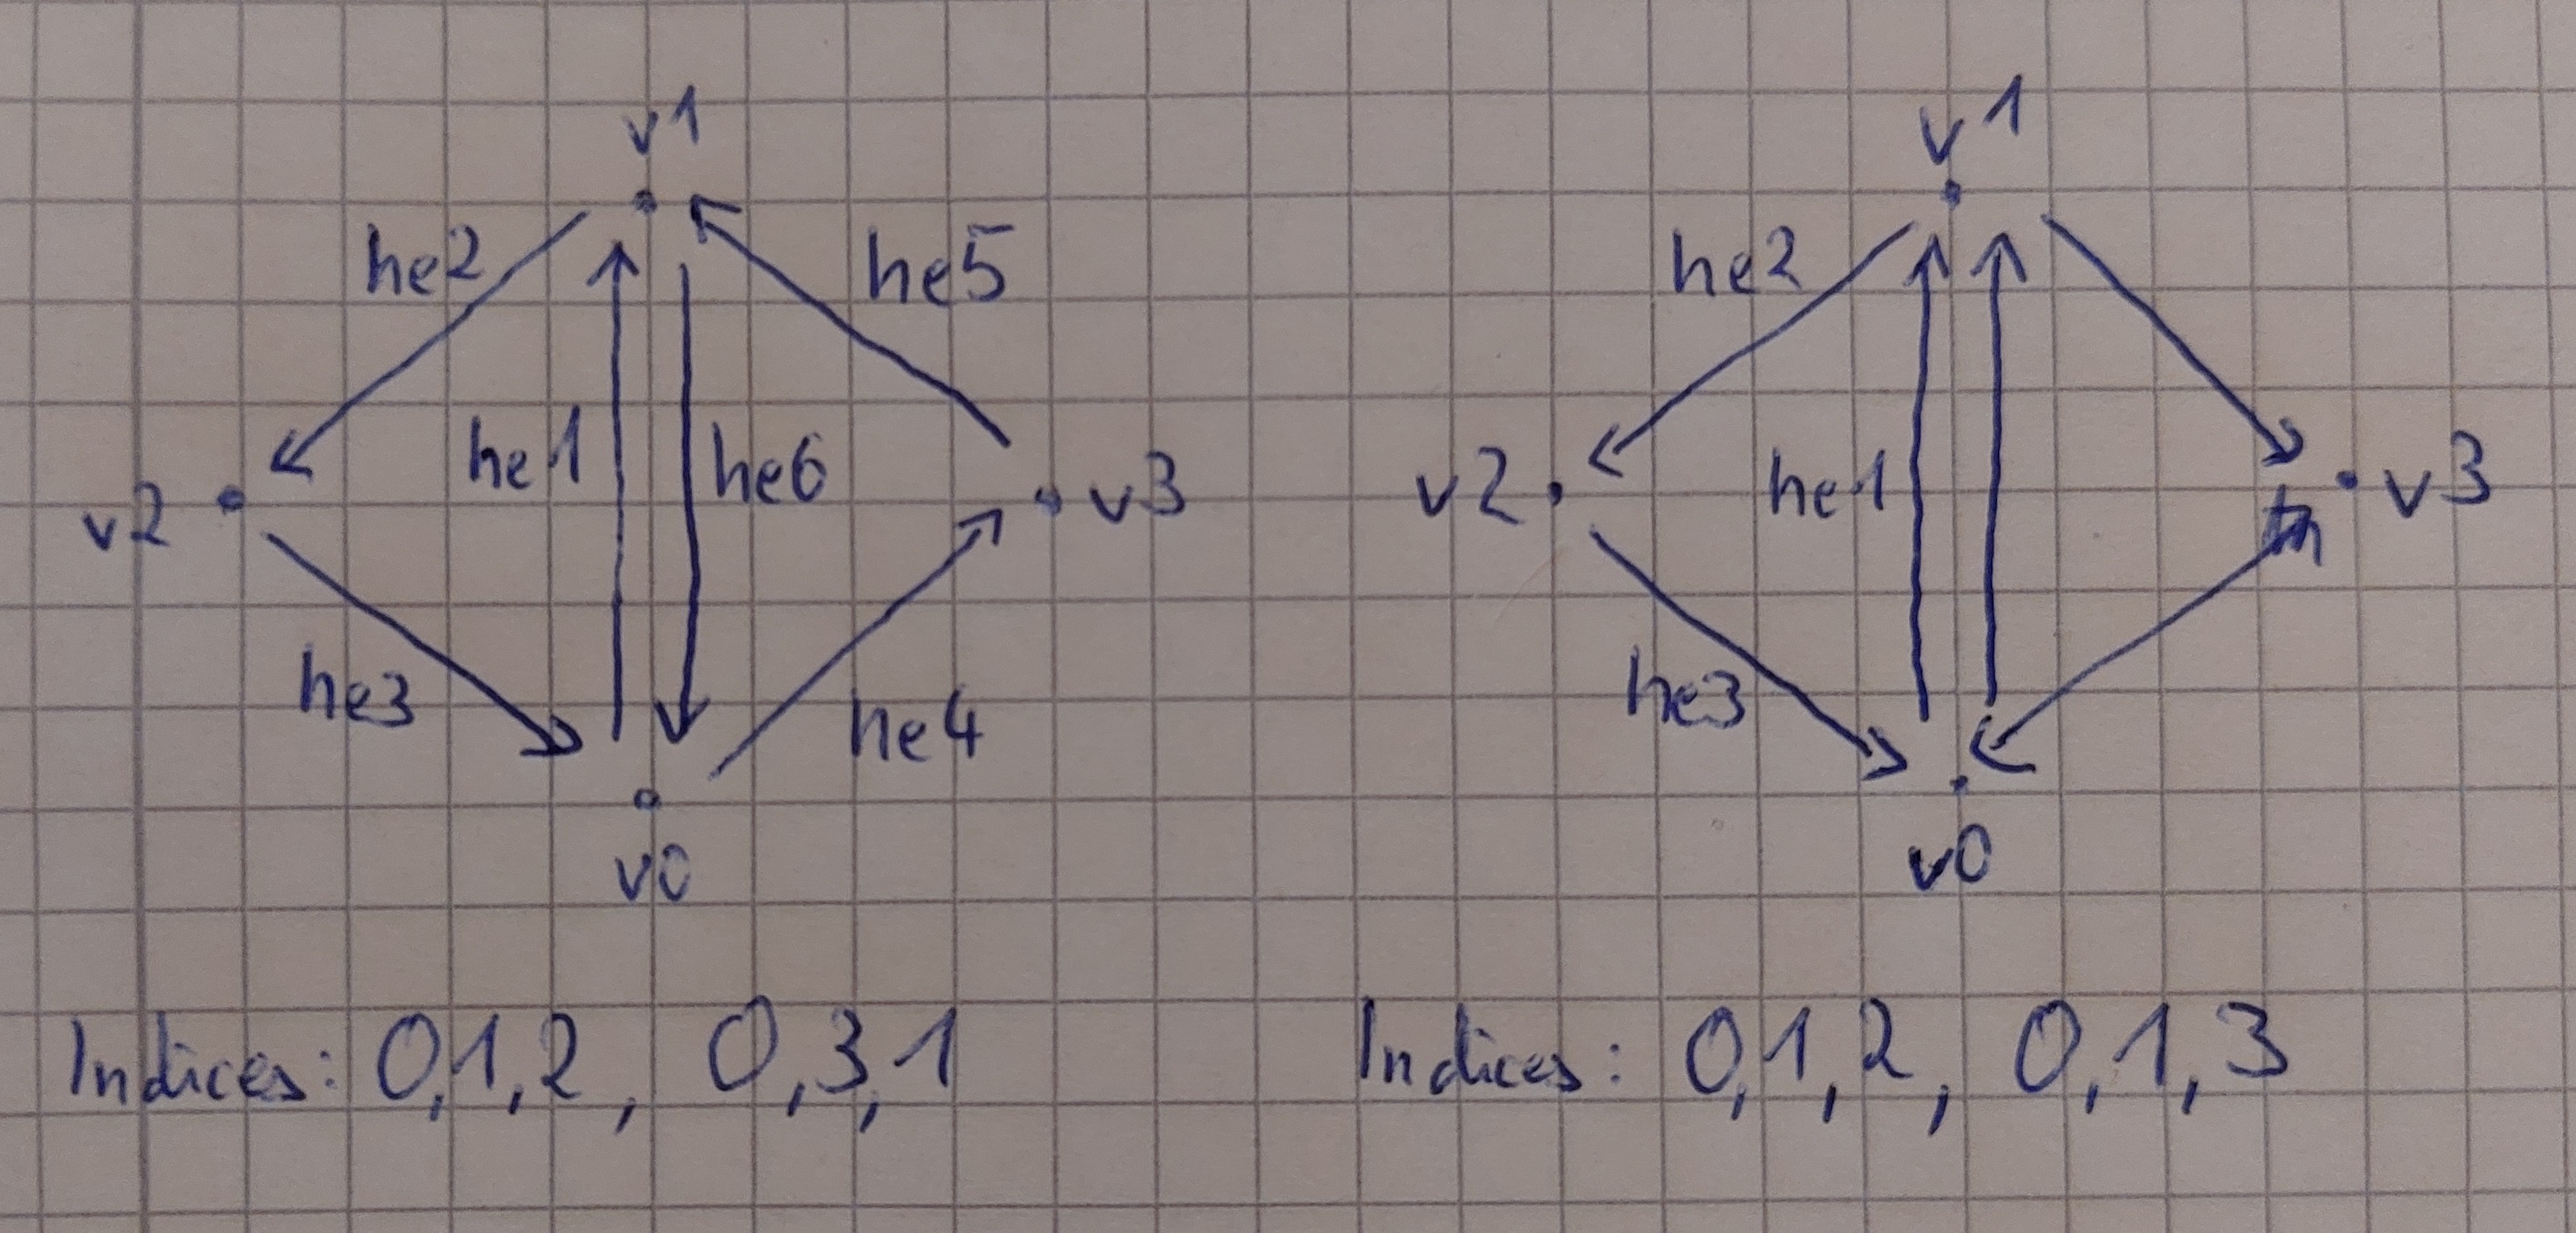 v1
he2
he5
he1
he6
v2
v3
he3
he4
v0
Indices: 0,1,2, 0,3,1
v1
he2
v2
he1
v3
he3
v0
Indices: 0,1,2, 0,1,3